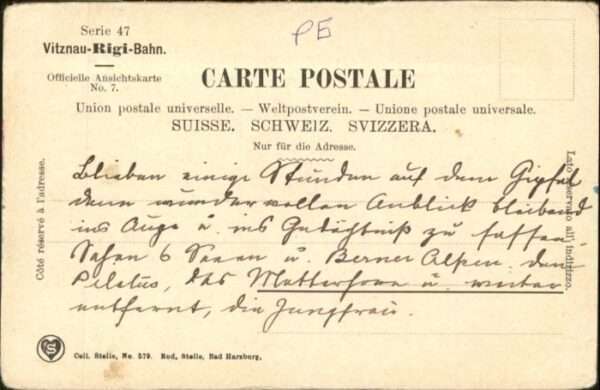 PE
Serie 47
Vitznau-Rigi-Bahn.
Officielle Ansichtskarte
No. 7.
CARTE POSTALE
Union postale universelle. — Weltpostverein. — Unione postale universale.
SUISSE. SCHWEIZ. SVIZZERA.
Nur für die Adresse.
Côté réservé à l'adresse.
Lato riservato all' indirizzo.
Blieben einige Stunden auf dem Gipfel
denn wundervollen Anblick bleibend
ins Auge u. ins Gedächtniß zu fassen.
Sahen 6 Seen u. Berner Alpen. den
Pilatus, das Matterhorn u. weiter
entfernt, die Jungfrau.
S
Coll. Stelle, No. 579. Rod. Stelle, Bad Harzburg.